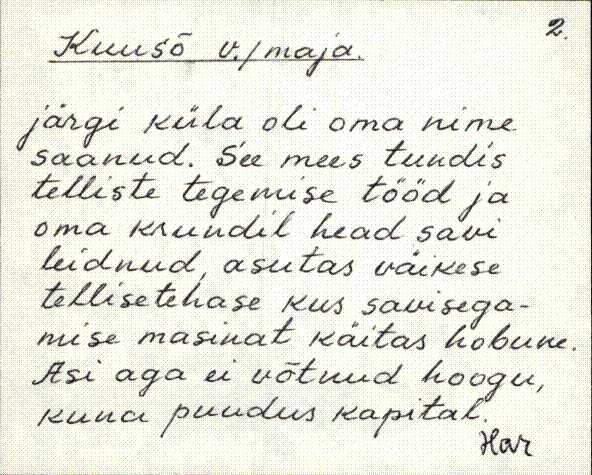 2.
Kuusõ v./maja.
järgi küla oli oma nime
saanud. See mees tundis
telliste tegemise tööd ja
oma krundil head savi
leidnud, asutas väikese
tellisetehase kus savisega-
mise masinat käitas hobune.
Asi aga ei võtnud hoogu,
kuna puudus kapital.
Har